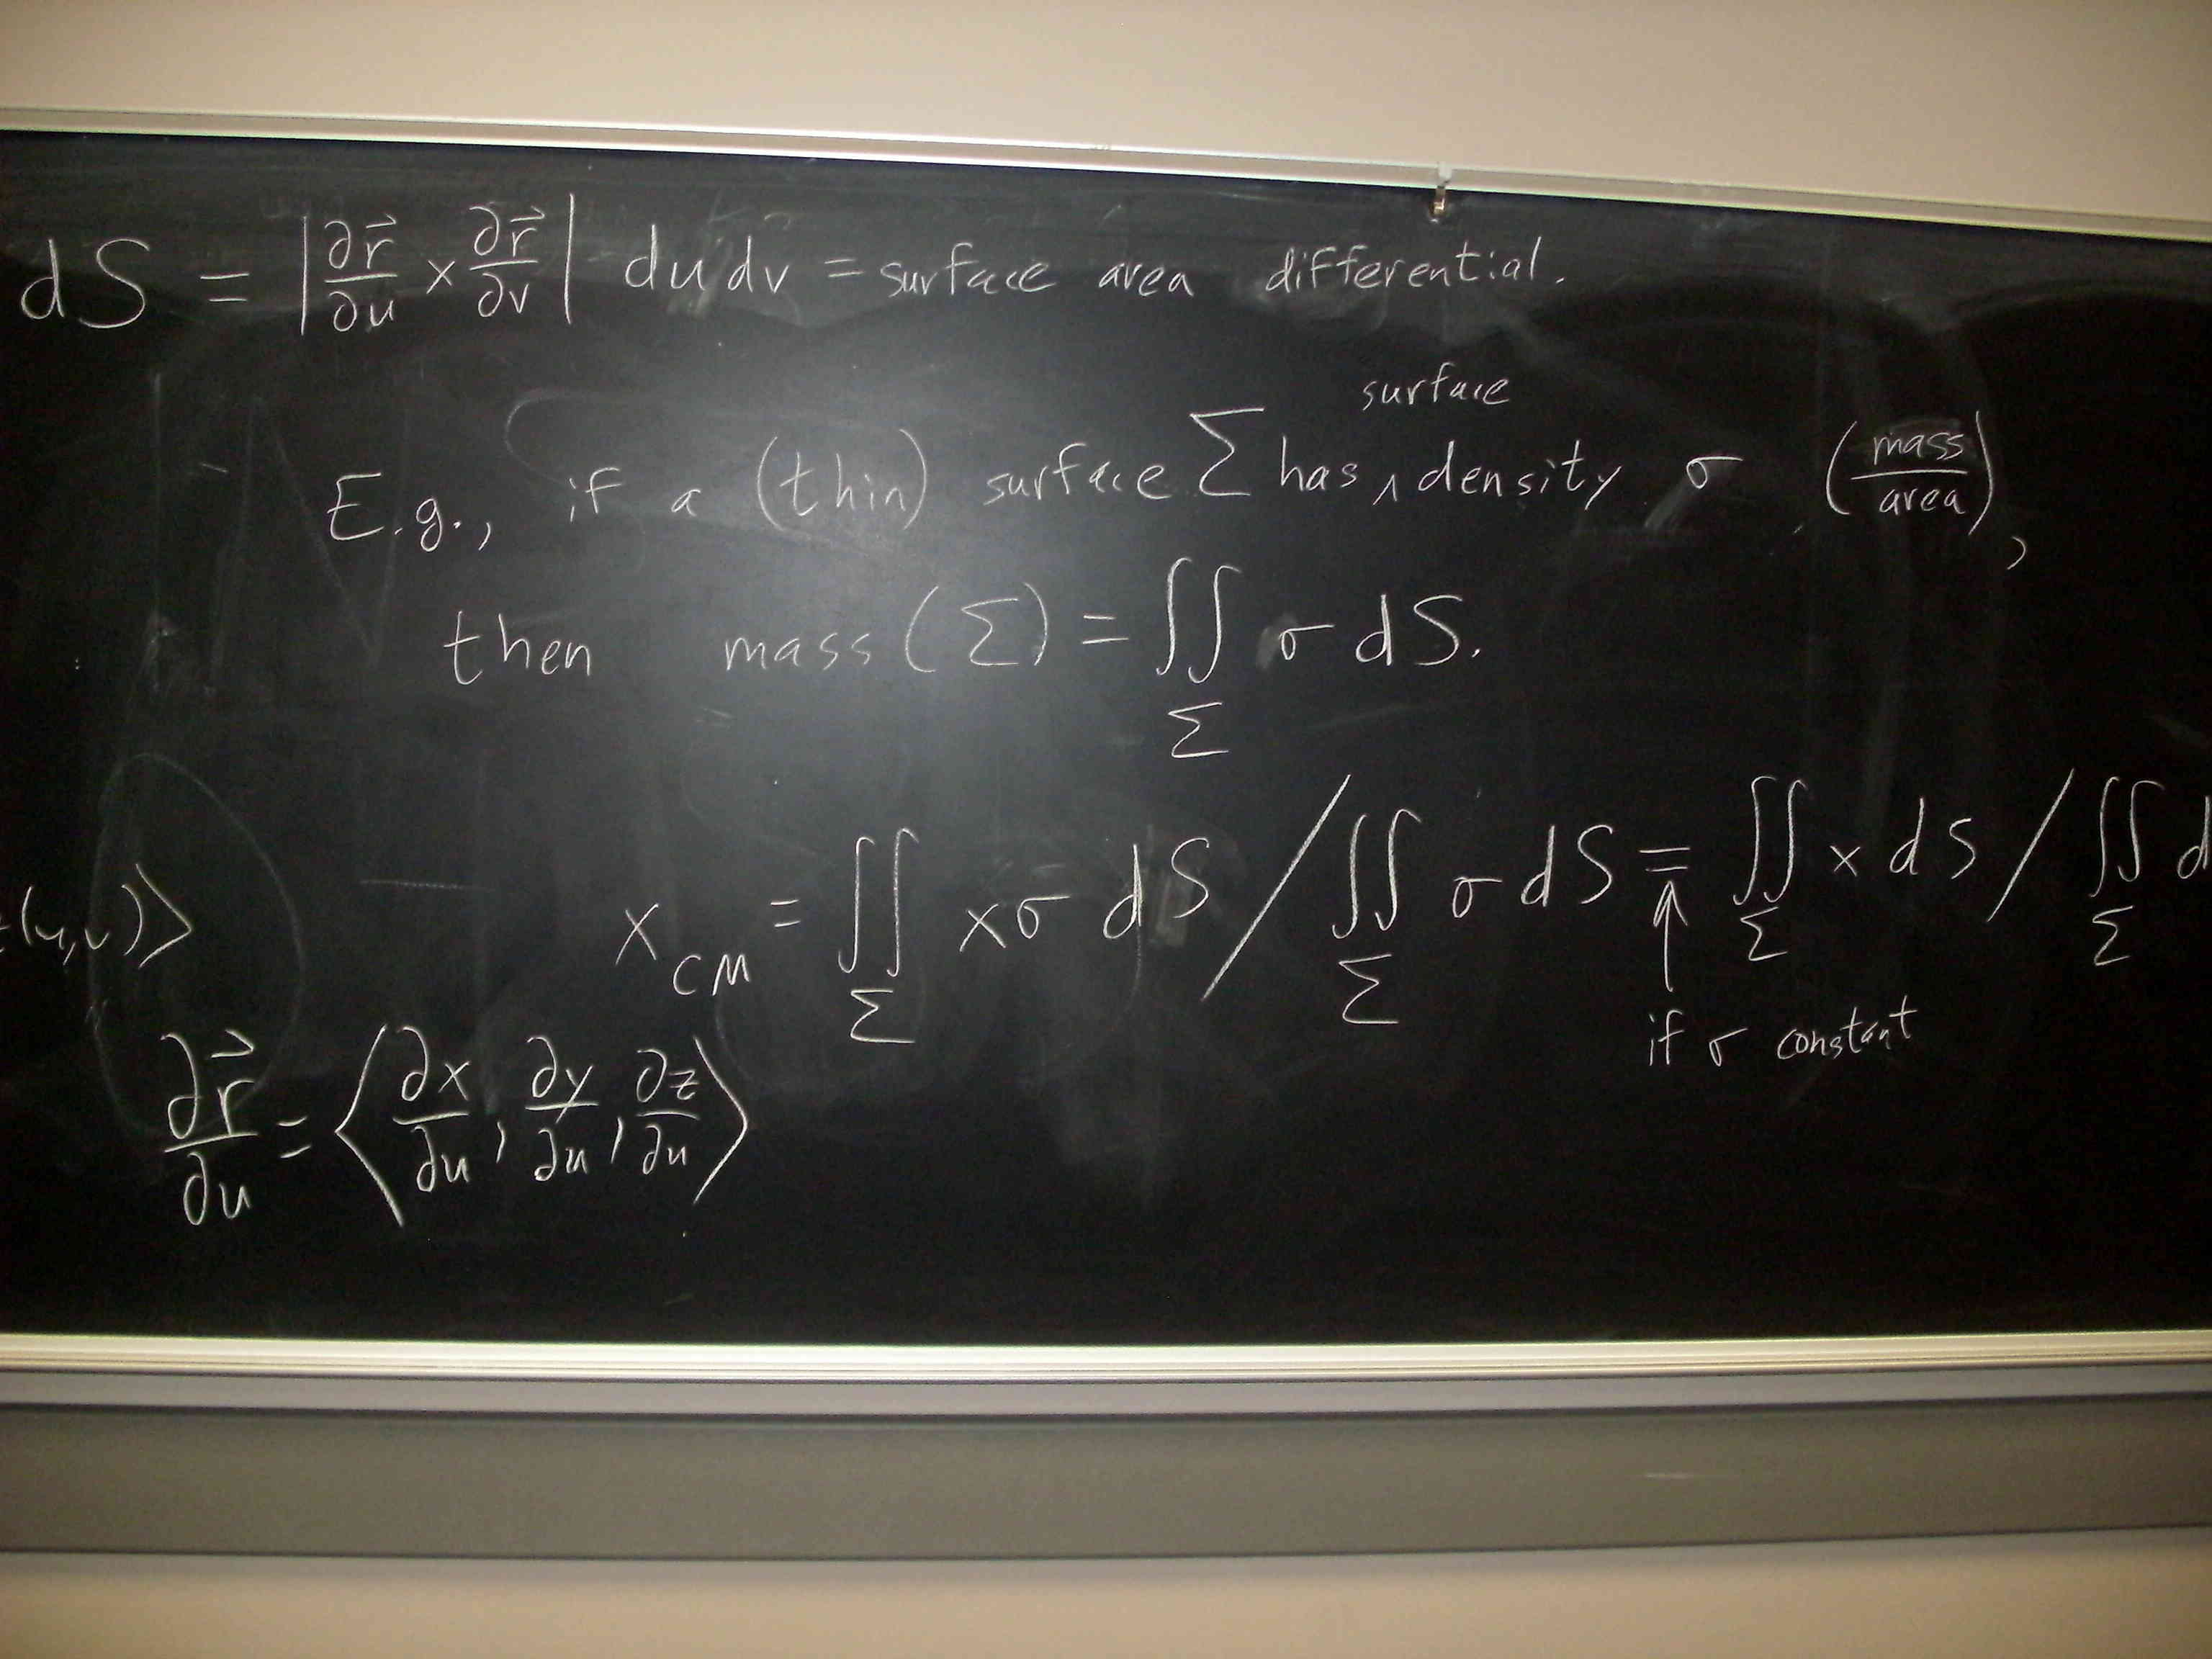 dS = |∂r⃗/∂u × ∂r⃗/∂v| du dv = surface area differential.
E.g., if a (thin) surface Σ has ‸surface density σ (mass/area),
then mass(Σ) = ∬_Σ σ dS.
x_CM = ∬_Σ xσ dS / ∬_Σ σ dS = ∬_Σ x dS / ∬_Σ d
(u,v)⟩
if σ constant
∂r⃗/∂u = ⟨∂x/∂u, ∂y/∂u, ∂z/∂u⟩